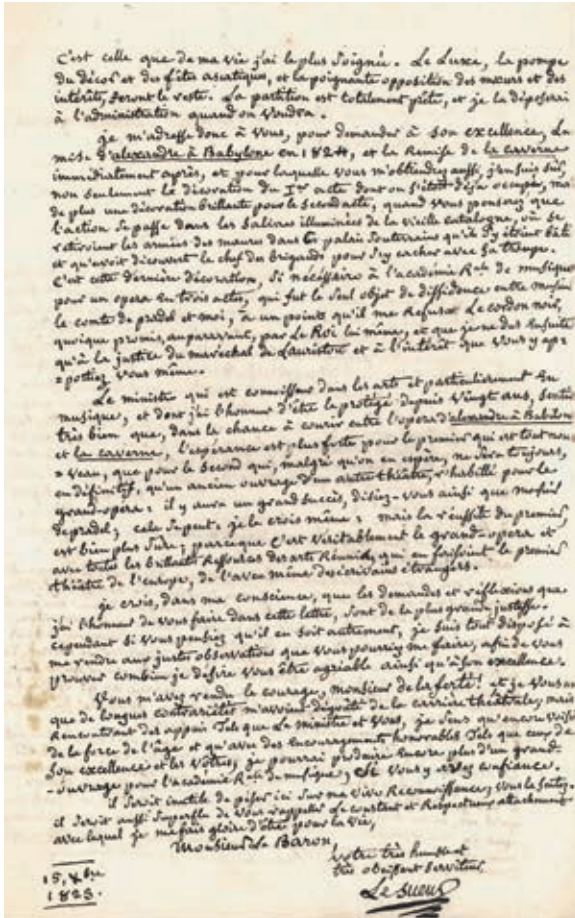 c'est celle que de ma vie j'ai le plus soignée. Le Luxe, la pompe
du décor et des fêtes asiatiques, et la poignante opposition des mœurs et des
intérêts, feront le reste. La partition est totalement prête, et je la déposerai
à l'administration quand on voudra.
je m'adresse donc à vous, pour demander à son excellence, La
mise d'alexandre à Babylone en 1824, et la Remise de la caverne
immédiatement après, et pour laquelle vous m'obtiendrez aussi, j'en suis sûr,
non seulement la décoration du 1er acte dont on s'était déja occupé, mais
de plus une décoration brillante pour le second acte, quand vous penserez que
l'action se passe dans les salines illuminées de la vieille catalogne, où se
retiroient les armées des maures dans les palais souterrains qu'ils y avoient bâti
et qu'avoit découvert le chef des brigands pour s'y cacher avec sa troupe.
C'est cette dernière décoration, si nécessaire à l'académie Rle de musique
pour un opera en trois actes, qui fut le seul objet de diffidence entre monsieur
le comte de pradel et moi, au point qu'il me refusa Le cordon noir,
quoique promis, auparavant, par Le Roi lui même, et que je ne dus ensuite
qu'à la justice du maréchal de Lauriston et à l'intérêt que vous y ap=
=portiez vous même.
Le ministre qui est connoisseur dans les arts et particulierement En
musique, et dont j'ai l'honneur d'être le protégé depuis vingt ans, sentira
très bien que, dans la chance à courir entre l'opera d'alexandre à Babilone
et la caverne, l'espérance est plus forte pour le premier qui est tout nou=
=veau, que pour le second qui, malgré qu'on en espère, ne sera toujours,
en définitif, qu'un ancien ouvrage d'un autre théâtre, r'habillé pour le
grand-opera: il y aura un grand succès, disiez-vous ainsi que monsieur
de pradel; cela se peut: je le crois même: mais la réussite du premier,
est bien plus sure; parceque c'est véritablement le grand-opera et
avec toutes les brillantes Ressources des arts Réunis, qui en faisoient le premier
théâtre de l'europe, de l'aveu même des écrivains étrangers.
je crois, dans ma conscience, que les demandes et réflexions que
j'ai l'honneur de vous faire dans cette lettre, sont de la plus grande justesse.
cependant si vous pensiez qu'il en soit autrement, je suis tout disposé à
me rendre aux justes observations que vous pourriez me faire, afin de vous
prouver combien je désire vous être agréable ainsi qu'à son excellence.
Vous m'avez rendu le courage, monsieur de la ferté! et je vous
que de longues contrariétés m'avoient dégouté de la carrière théâtrale; mais
Rencontrant des appuis Tels que Le ministre et vous, je sens qu'encore
de la force de l'âge et qu'avec des Encouragements honorables Tels que ceux de
Son excellence et les Vôtres, je pourrai produire Encore plus d'un grand
-ouvrage pour l'académie Rle de musique, si vous y avez confiance.
il seroit inutile de peser ici sur ma vive Reconnoissance; vous la sentez.
il seroit aussi superflu de vous rappeler Le constant et Respectueux attachement
avec lequel je me fais gloire d'être pour la vie,
Monsieur Le Baron,
votre très humble et
très obéissant serviteur,
Le sueur
15, Xbre
1823.